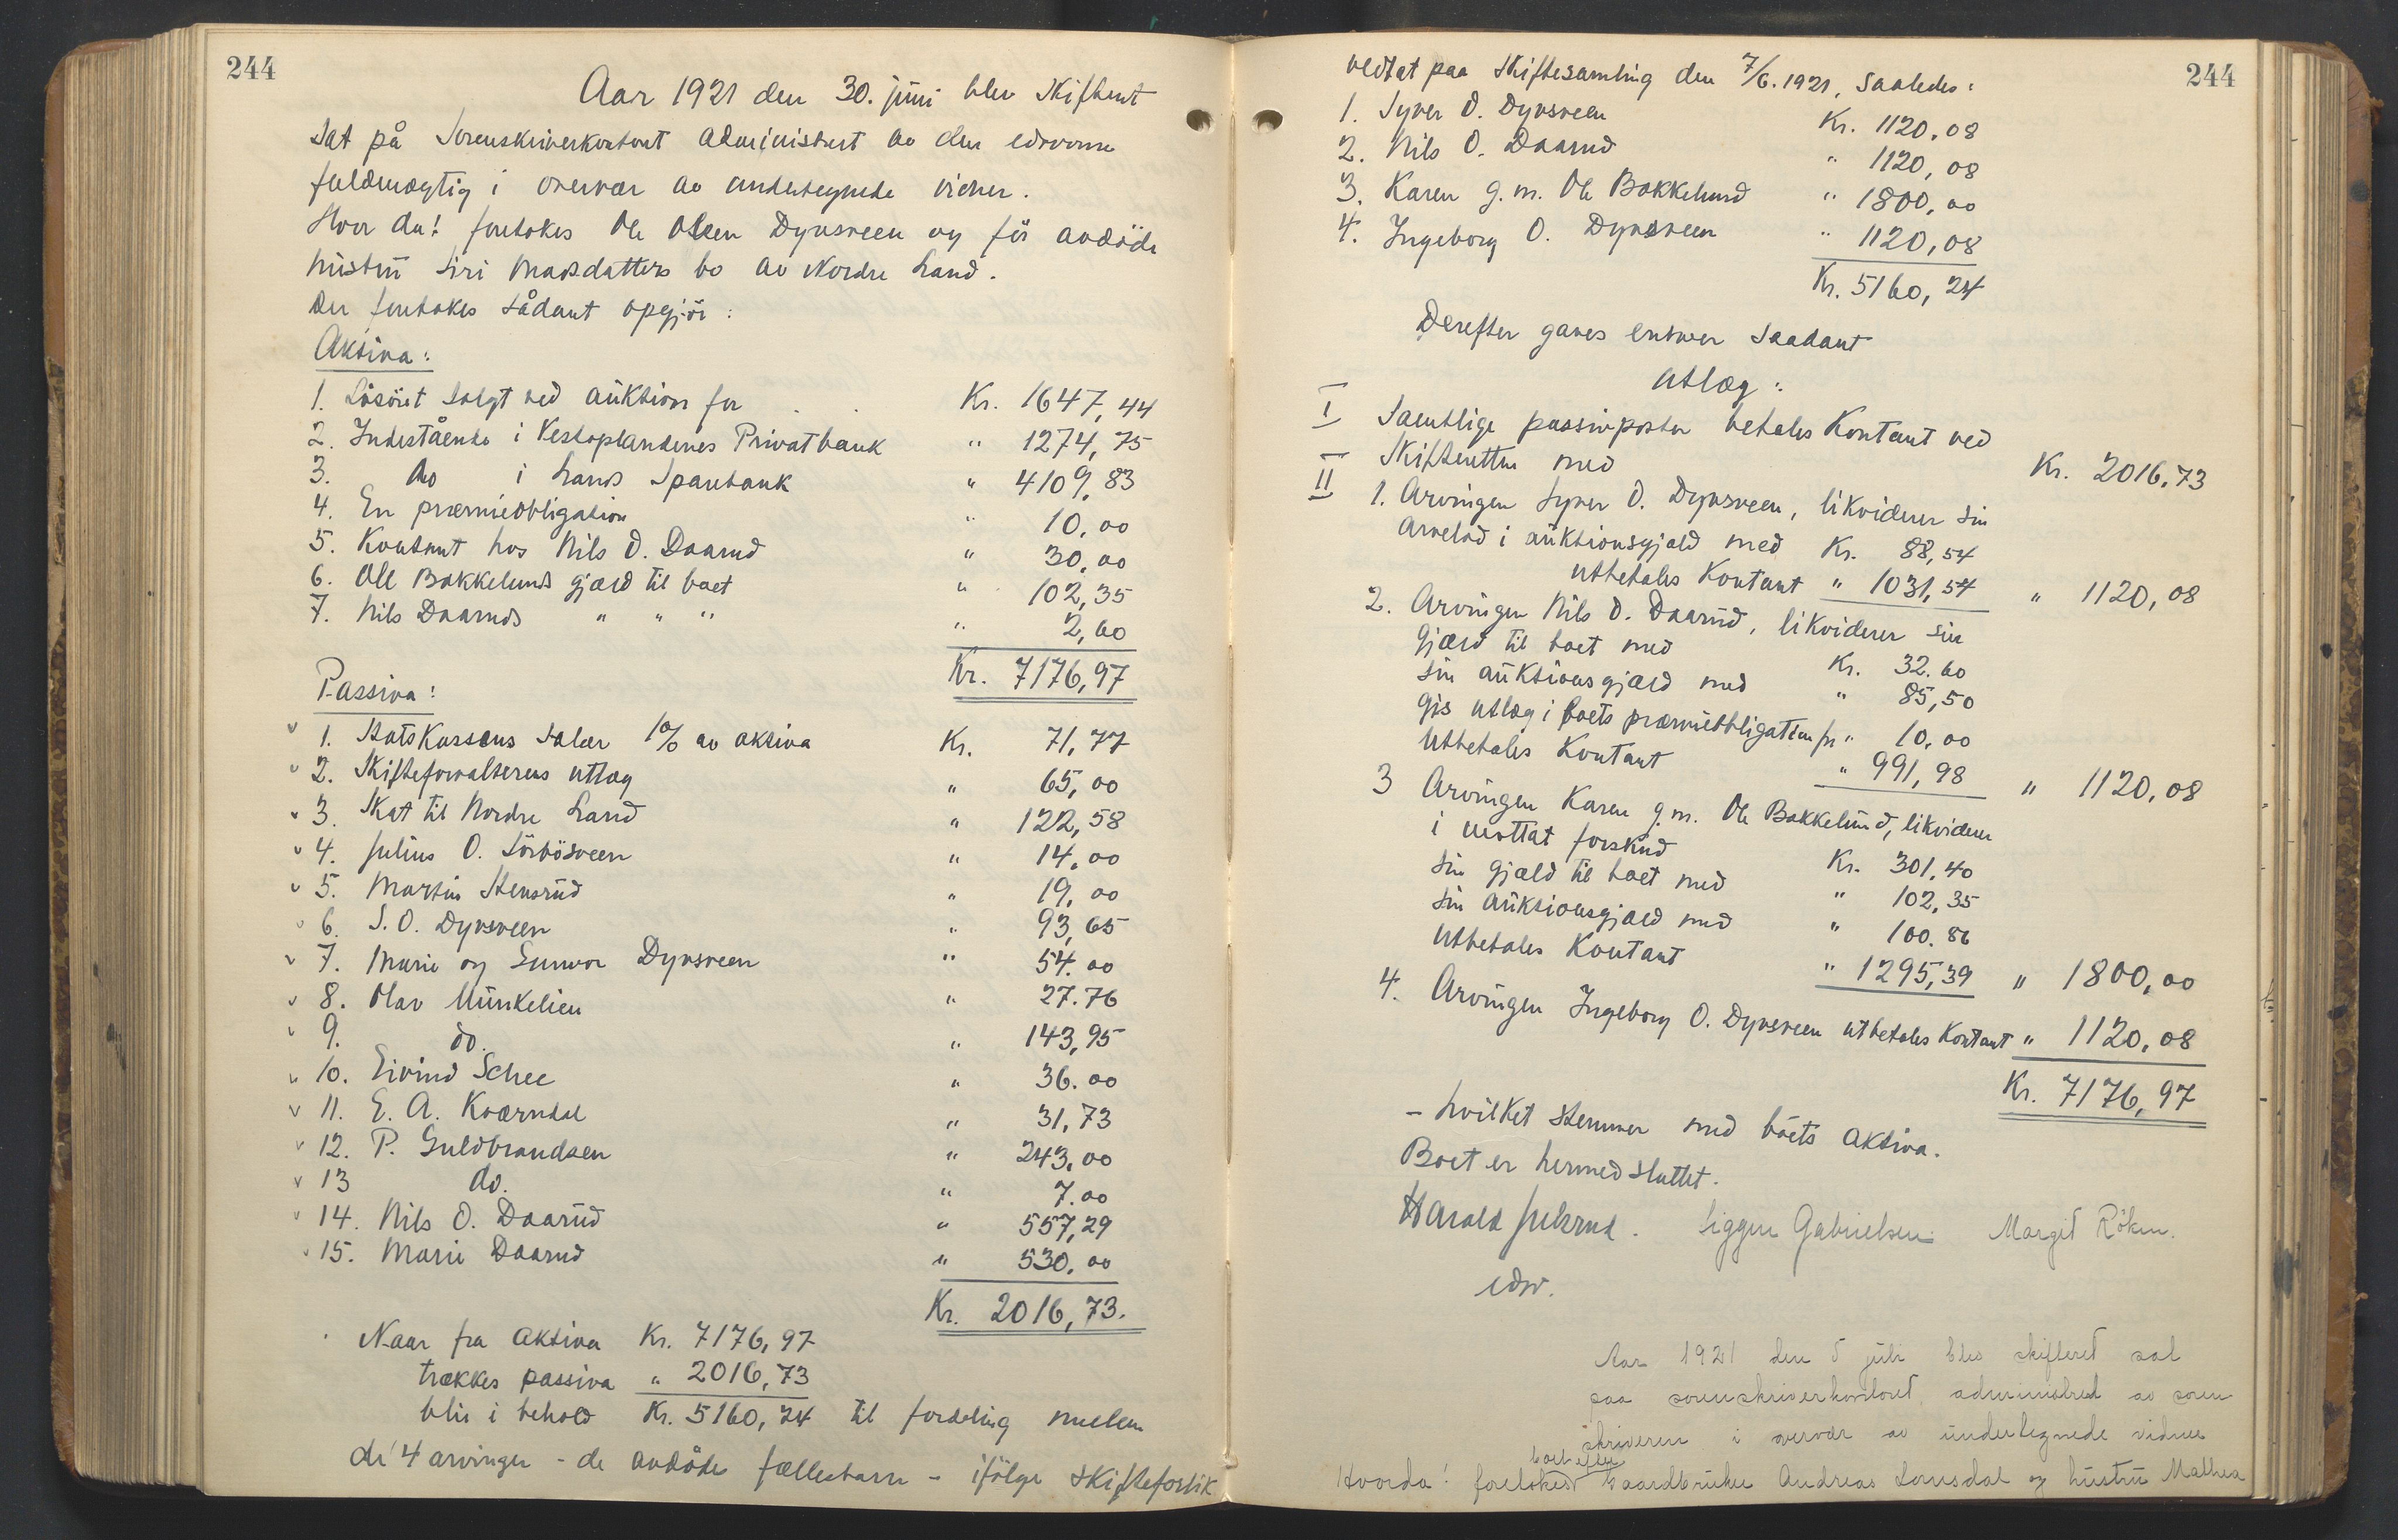 244
Aar 1921 den 30. juni blev skifteret
sat på Sorenskriverkontoret administrert av den edsvorne
fuldmægtig i overvær av undertegnede vidner.
Hvor da! foretokes Ole Olsen Dyvsveen og før avdøde
hustru Siri Madsdatters bo av Nordre Land.
Der foretokes sådant opgjør:
Aktiva:
1. Løsøret solgt ved auktion for . . Kr. 1647,44
2. Indestående i Vestoplandenes Privatbank " 1274,75
3. do i Lands Sparebank " 4109,83
4. En præmieobligation " 10,00
5. Kontant hos Nils O. Daarud " 30,00
6. Ole Bakkelunds gjæld til boet " 102,35
7. Nils Daaruds " " " " 2,60
Kr. 7176,97
Passiva:
1. Statskassens salær 1% av aktiva Kr. 71,77
2. Skifteforvalterens utlæg " 65,00
3. Skat til Nordre Land " 122,58
4. Julius O. Sörbösveen " 14,00
5. Martin Stensrud " 19,00
6. S. O. Dyvsveen " 93,65
7. Marie og Gunvor Dyvsveen " 54.00
8. Olav Munkelien " 27.76
9. do. " 143,95
10. Eivind Schee " 36.00
11. E. A. Kværndal " 31,73
12. P. Guldbrandsen " 243,00
13 do. " 7.00
14. Nils O. Daarud " 557,29
15. Marie Daarud " 530.00
Kr. 2016,73.
Naar fra aktiva Kr. 7176,97
trækkes passiva " 2016,73
blir i behold Kr. 5160,24 til fordeling mellem
de 4 arvinger - de avdødes fællesbarn - ifølge skifteforlik
244
vedtat paa skiftesamling den 7/6.1921, saaledes:
1. Syver O. Dyvsveen Kr. 1120,08
2. Nils O. Daarud " 1120,08
3. Karen g.m. Ole Bakkelund " 1800,00
4. Ingeborg O. Dyvsveen " 1120,08
Kr. 5160,24
Derefter gaves enhver saadant
Utlæg:
I Samtlige passivposter betales kontant ved
skifteretten med Kr. 2016,73
II 1. Arvingen Syver O. Dyvsveen, likviderer sin
arvelod i auktionsgjæld med Kr. 88,54
utbetales kontant " 1031,54 " 1120,08
2. Arvingen Nils O. Daarud, likviderer sin
gjæld til boet med Kr. 32.60
sin auktionsgjæld med " 85,50
gis utlæg i boets præmieobligation for " 10,00
utbetales kontant " 991,98 " 1120,08
3 Arvingen Karen g.m. Ole Bakkelund, likviderer
i mottat forskud Kr. 301,40
sin gjæld til boet med " 102,35
sin auktionsgjæld med " 100.86
utbetales kontant " 1295,39 " 1800,00
4. Arvingen Ingeborg O. Dyvsveen utbetales kontant " 1120,08
Kr. 7176,97
- hvilket stemmer med boets aktiva.
Boet er hermed sluttet.
Harald Siggen Gabrielsen Margit Røken.
edsv.
Aar 1921 den 5 juli blev skifteret sat
paa sorenskriverkontoret administreret av soren
skriveren i overvær av undertegnede vidner
boet efter
Hvorda! foretokes gaardbruker Andreas Lonsdal og hustru Mathea